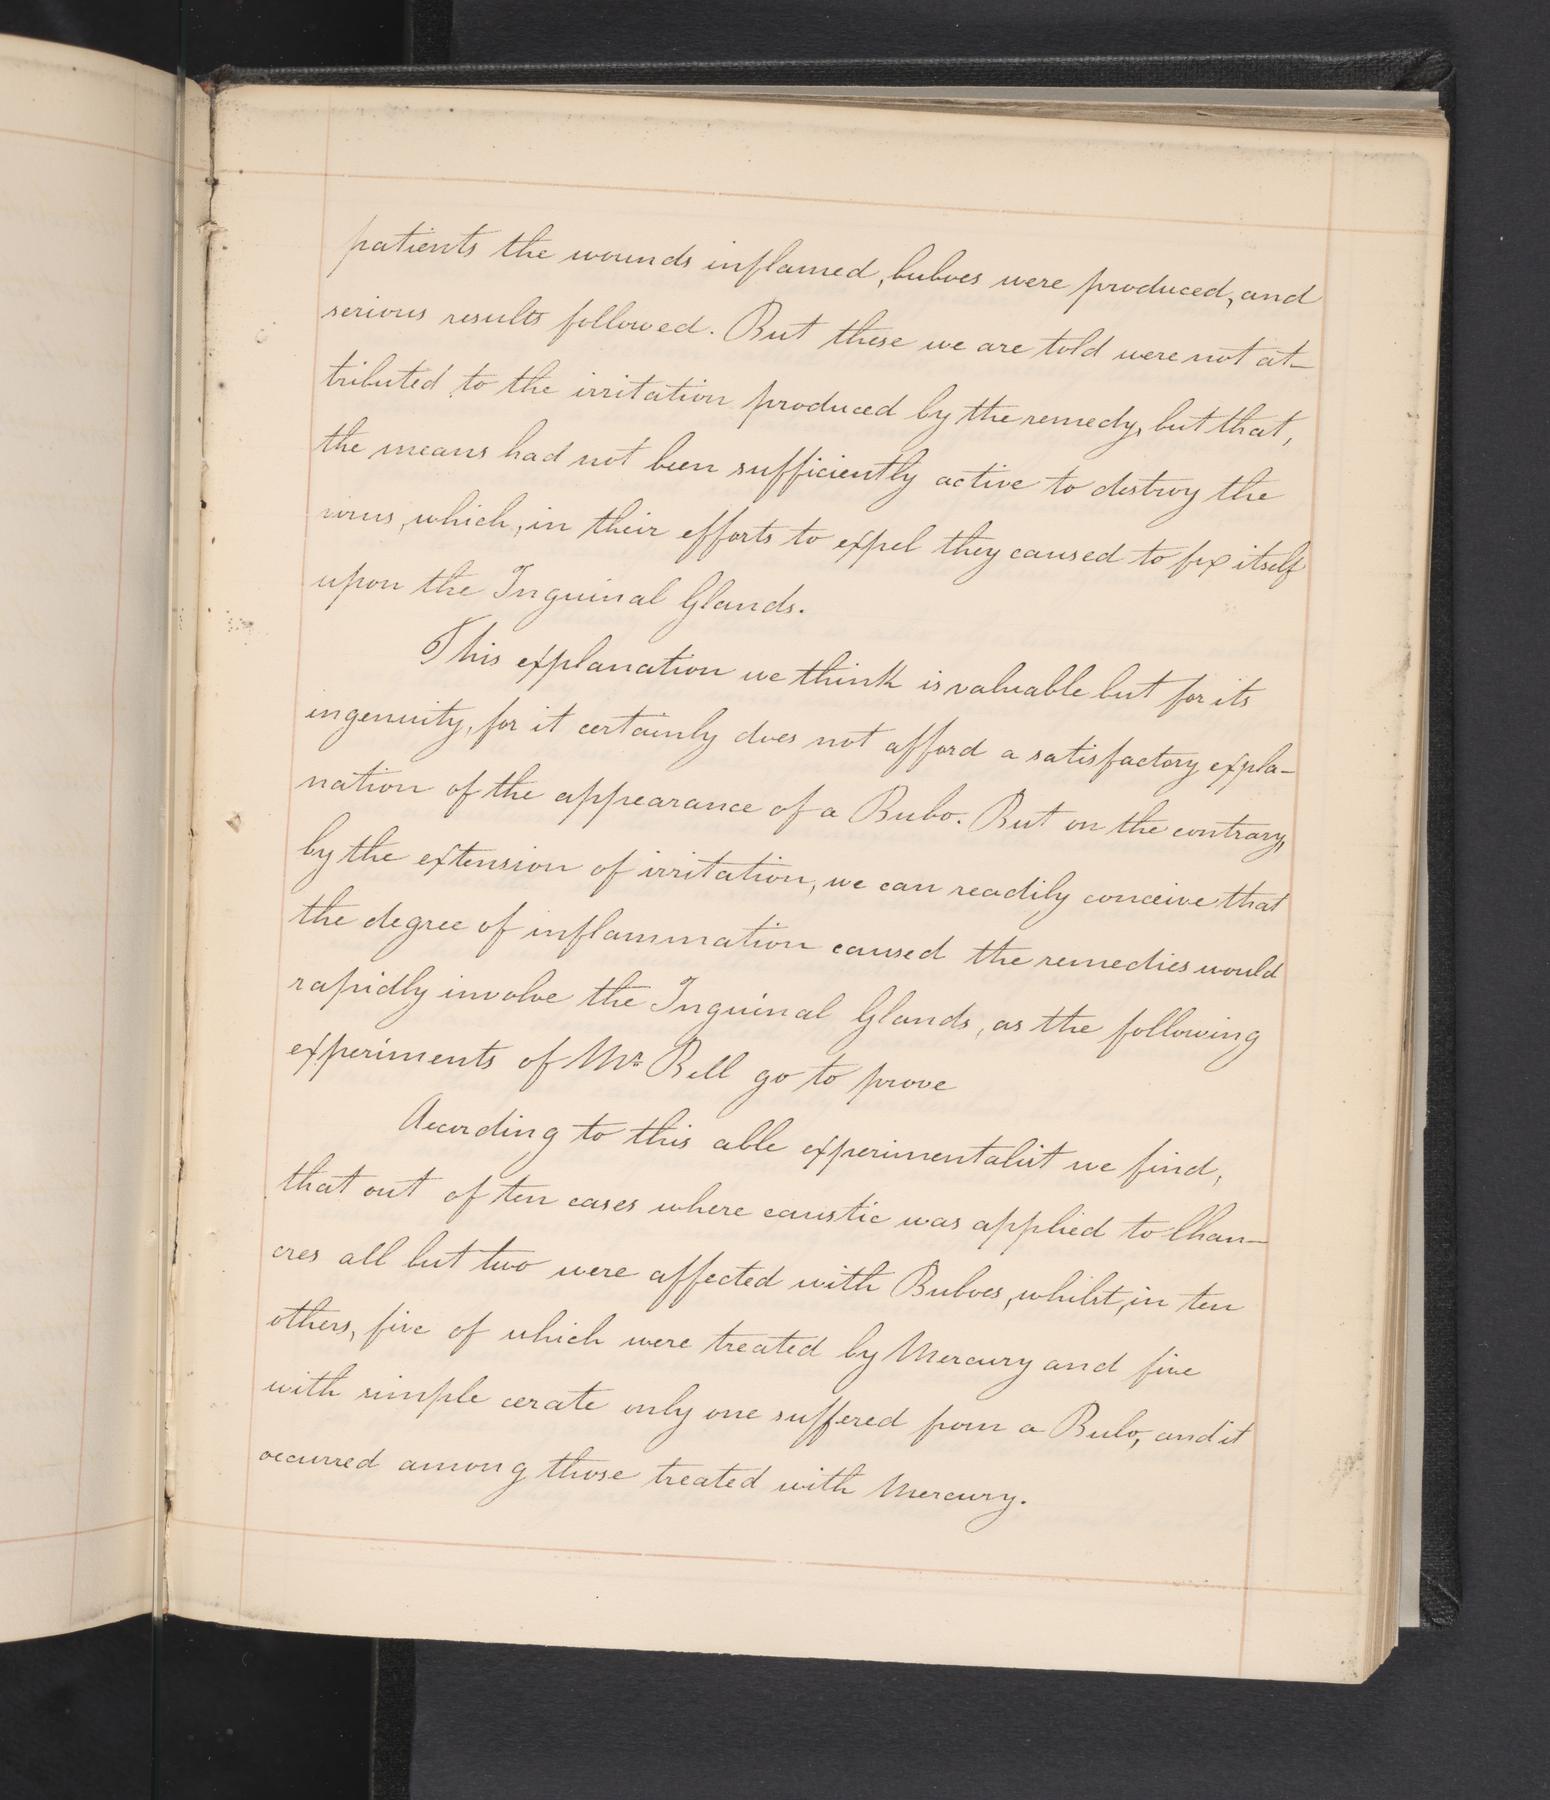 patients the wounds inflamed, buboes were produced, and
serious results followed. But these we are told were not at-
tributed to the irritation produced by the remedy, but that,
the means had not been sufficiently active to destroy the
virus, which, in their efforts to expel they caused to fix itself
upon the Inguinal Glands.
This explanation we think is valuable but for its
ingenuity, for it certainly does not afford a satisfactory expla-
nation of the appearance of a Bubo. But on the contrary,
by the extension of irritation, we can readily conceive that
the degree of inflammation caused the remedies would
rapidly involve the Inguinal Glands, as the following
experiments of Mr Bell go to prove
According to this able experimentalist we find,
that out of ten cases where caustic was applied to Chan-
cres all but two were affected with Buboes, whilst, in ten
others, five of which were treated by Mercury and five
with simple cerate only one suffered from a Bubo, and it
occurred among those treated with Mercury.